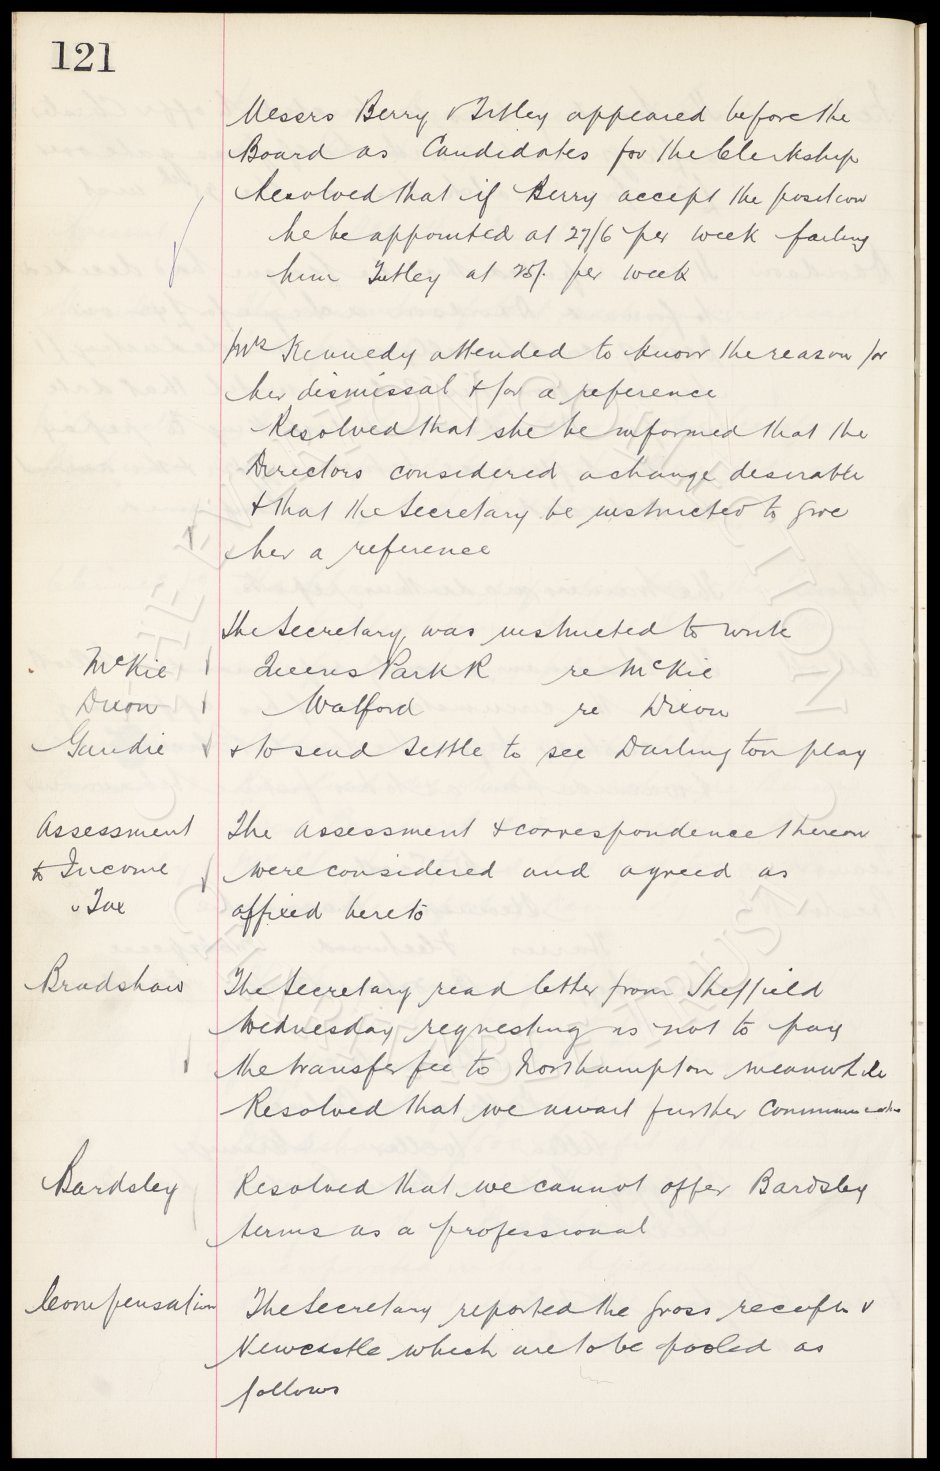 121
Messrs Berry & Titley appeared before the
Board as Candidates for the Clerkship
Resolved that if Berry accept the position
he be appointed at 27/6 per week failing
him Titley at 25/- per week
Mrs Kennedy attended to know the reason for
her dismissal & for a reference
Resolved that she be informed that the
Directors considered a change desirable
& that the Secretary be instructed to give
her a reference
The Secretary was instructed to write
McKie Queens Park R re McKie
Dixon Watford re Dixon
Gaudie & to send Settle to see Darlington play
Assessment The assessment & correspondence thereon
to Income were considered and agreed as
Tax affixed hereto
Bradshaw The Secretary read letter from Sheffield
Wednesday requesting us not to pay
the transfer fee to Northampton meanwhile
Resolved that we await further communication
Bardsley Resolved that we cannot offer Bardsley
terms as a professional
Compensation The Secretary reported the gross receipts v
Newcastle which are to be pooled as
follows